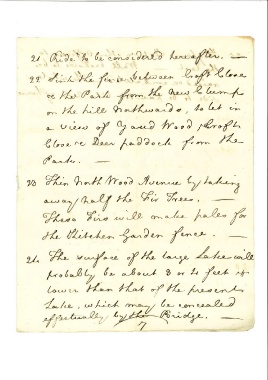 21 Ride to be considered hereafter. —
22 the fence between Croft Close
& the Park from the New Clump
on the hill Northwards, to let in
a view of Wood, Croft
Close & Deer paddock from the
Park. —
23 Thin North Wood Avenue by taking
away half the Fir Trees. —
These Firs will make pales for
the Kitchen Garden fence. —
24 The surface of the large Lake will
probably be about 8 or 10 feet
lower than that of the present
Lake, which may be concealed
effectually by the Bridge. —
7